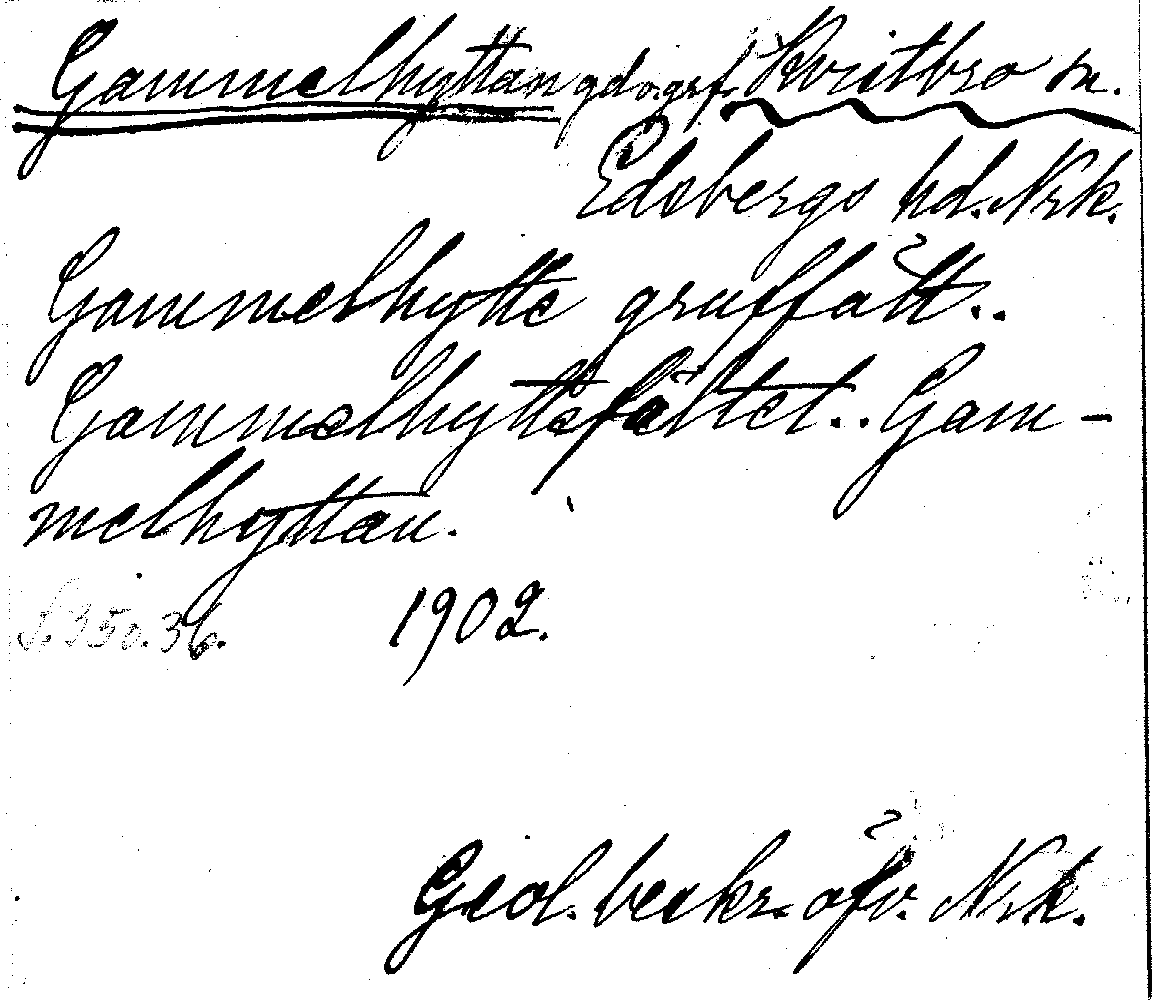 Gammelhyttan gd o. grf. Kvistbro sn.
Edsbergs hd. Nrk.
Gammelhytte gruffält..
Gammelhyttefältet.. Gam-
melhyttan.
S. 350. 36. 1902.
Geol. beskr. öfv. Nrk.